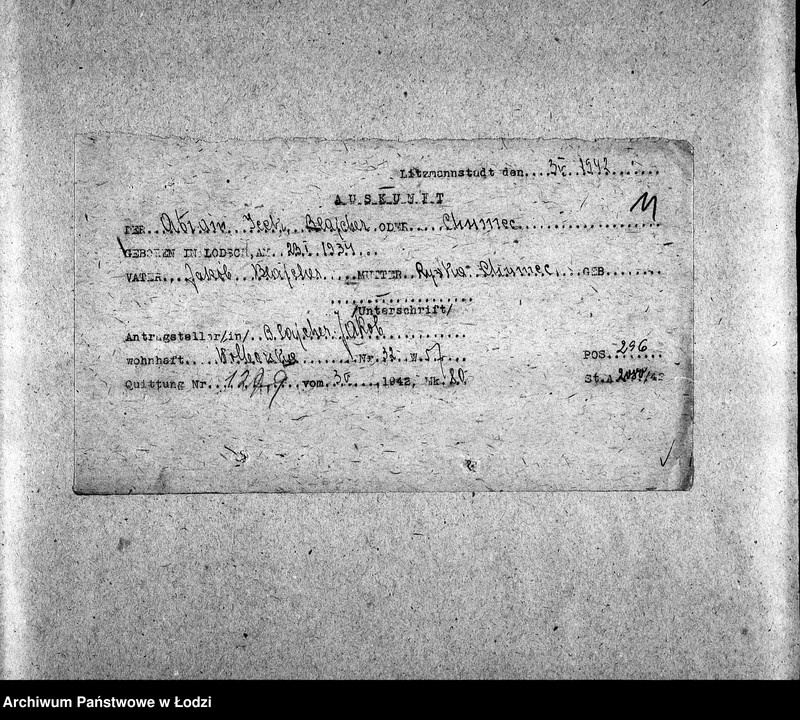 Litzmannstadt den....3V..1942.......
A U S K U N F T
DER..Abram Icek, Blajcher ODER....Chumec.................. M
GEBOREN IN LODSCH, AM..23.I.1934...
VATER...Jakob Blajcher.....MUTTER..Ryfka Chumec...GEB........
/Unterschrift/
Antragsteller/in/..Blajcher Jakob............
wohnhaft.............Nr.32..W.57... POS.296.....
Quittung Nr...1299..vom.3V....,1942, Mk.80 St.A. /42